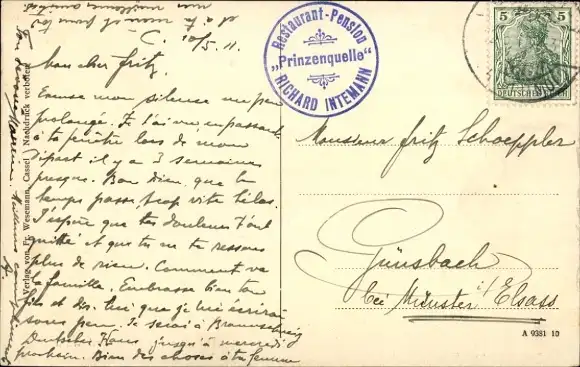 C. 10/5. 11.
Mon cher Fritz,
Excuse mon silence un peu
prolongé. Je t'ai vu en passant
à ta fenêtre lors de mon
départ il y a 3 semaines
presque. Bon Dieu, que le
temps passe trop vite hélas.
J'espère que tes douleurs t'ont
quitté et que tu ne te ressens
plus de rien. Comment va
ta famille. Embrasse bien ton
fils et dis-lui que je lui écrirai
sous peu. Je serai à Braunschweig
Deutsches Haus jusqu'à mercredi
prochain. Bien des choses à ta femme
et à ta
Verlag von Fr. Wesemann, Cassel. Nachdruck verboten.
Restaurant-Pension
„Prinzenquelle"
RICHARD INTEMANN
5 5
DEUTSCHES REICH
Monsieur Fritz Schoeppler
Günsbach
bei Münster i/Elsass
A 9381 10